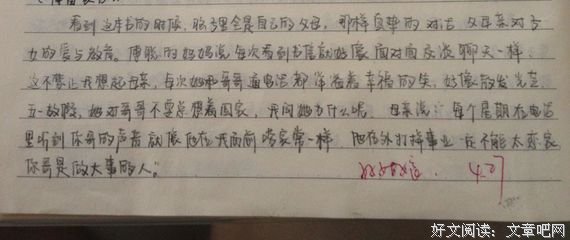 看到这本书的时候,脑子里全是自己的父母,那样真挚的对话,父母亲对子
女的爱与教育。傅聪的妈妈说每次看到书信就好像面对面交谈聊天一样,
这不禁让我想起母亲,每次她和哥哥通电话都洋溢着幸福的笑,好像散发光芒
五一放假,她对哥哥不要总想着回家,我问她为什么呢,母亲说:每个星期在电话
里听到你哥的声音就像他在我面前唠家常一样,他在外打拼事业一定不能太恋家
你哥是做大事的人。
4.27
好文阅读:文章吧网